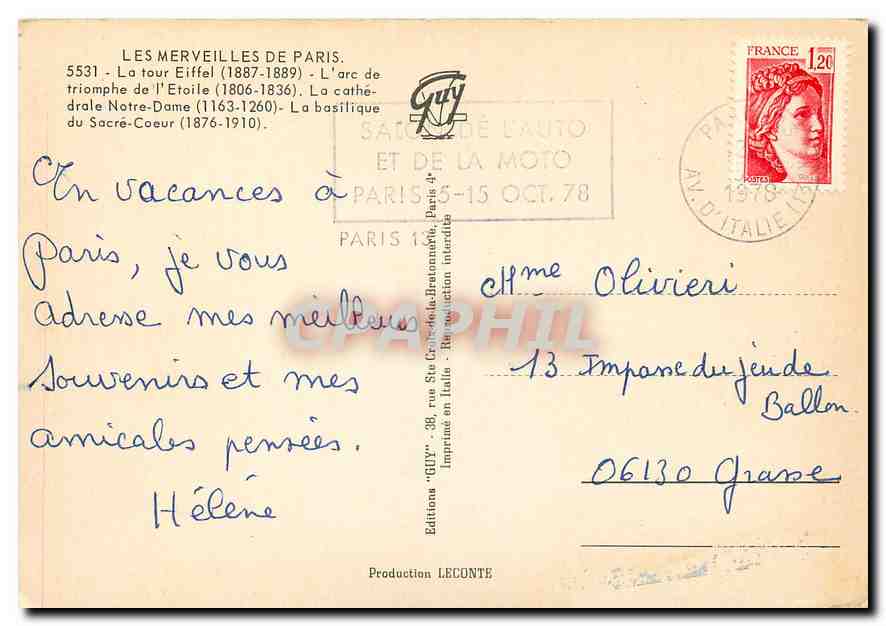 LES MERVEILLES DE PARIS.
5531 - La tour Eiffel (1887-1889) - L'arc de
triomphe de l'Etoile (1806-1836). La cathé-
drale Notre-Dame (1163-1260)- La basilique
du Sacré-Coeur (1876-1910).
Guy
SALON DE L'AUTO
ET DE LA MOTO
PARIS 5-15 OCT. 78
PARIS 13
FRANCE 1,20
POSTES
1978
AV. D'ITALIE (13
En vacances à
Paris, je vous
adresse mes meilleurs
souvenirs et mes
amicales pensées.
Hélène
Editions "GUY" - 38, rue Ste Croix-de-la-Bretonnerie, Paris 4e
Imprimé en Italie - Reproduction interdite
CPAPHIL
Mme Olivieri
13 Impasse du jeu de
Ballon.
06130 Grasse
Production LECONTE